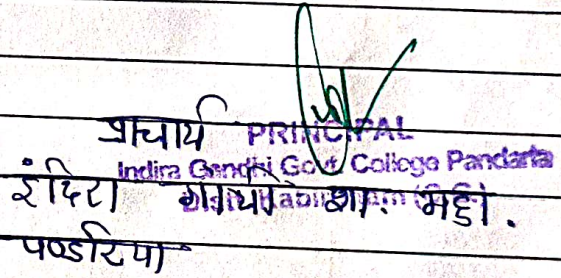 प्राचार्य PRINCIPAL
Indira Gandhi Govt. College Pandaria
इंदिरा गांधी शा. महा.
पण्डरिया